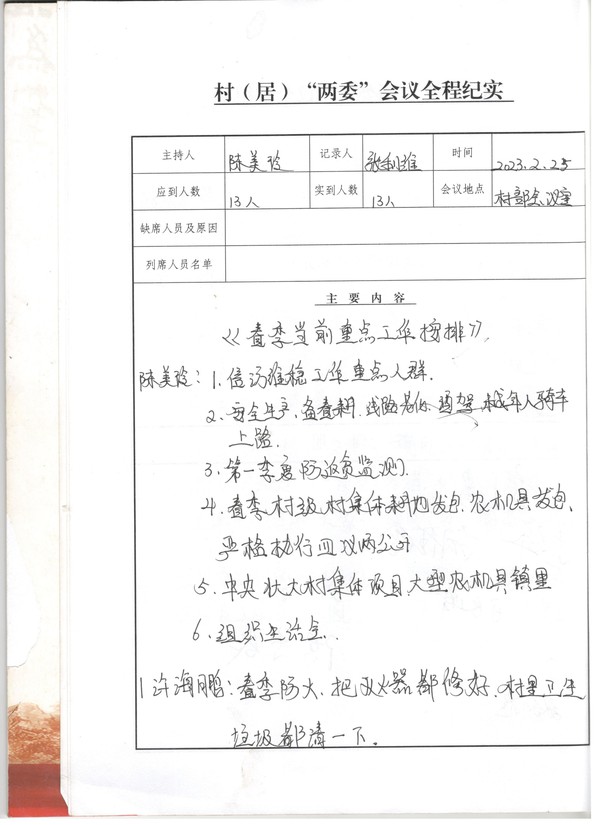 村（居）“两委”会议全程纪实
主持人 陈美玲 记录人 张利维 时间 2023.2.25
应到人数 13人 实到人数 13人 会议地点 村部会议室
缺席人员及原因
列席人员名单
主要内容
《春季当前重点工作按排》
陈美玲：1.信访维稳工作重点人群.
2.安全生产,备春耕.线路老化.酒驾.未成年人骑车
上路.
3.第一季度防返贫监测.
4.春季村级村集体耕地发包.农机具发包,
严格执行四议两公开
5.中央壮大村集体项目.大型农机具镇里
6.组织生活会.
许海鹏：春季防火.把灭火器都修好.村里卫生
垃圾都清一下.